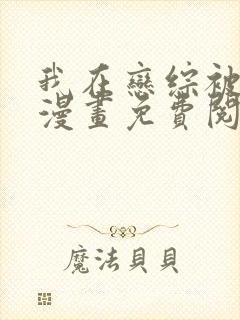 我在戀綜被
漫畫免費閱
魔法貝貝